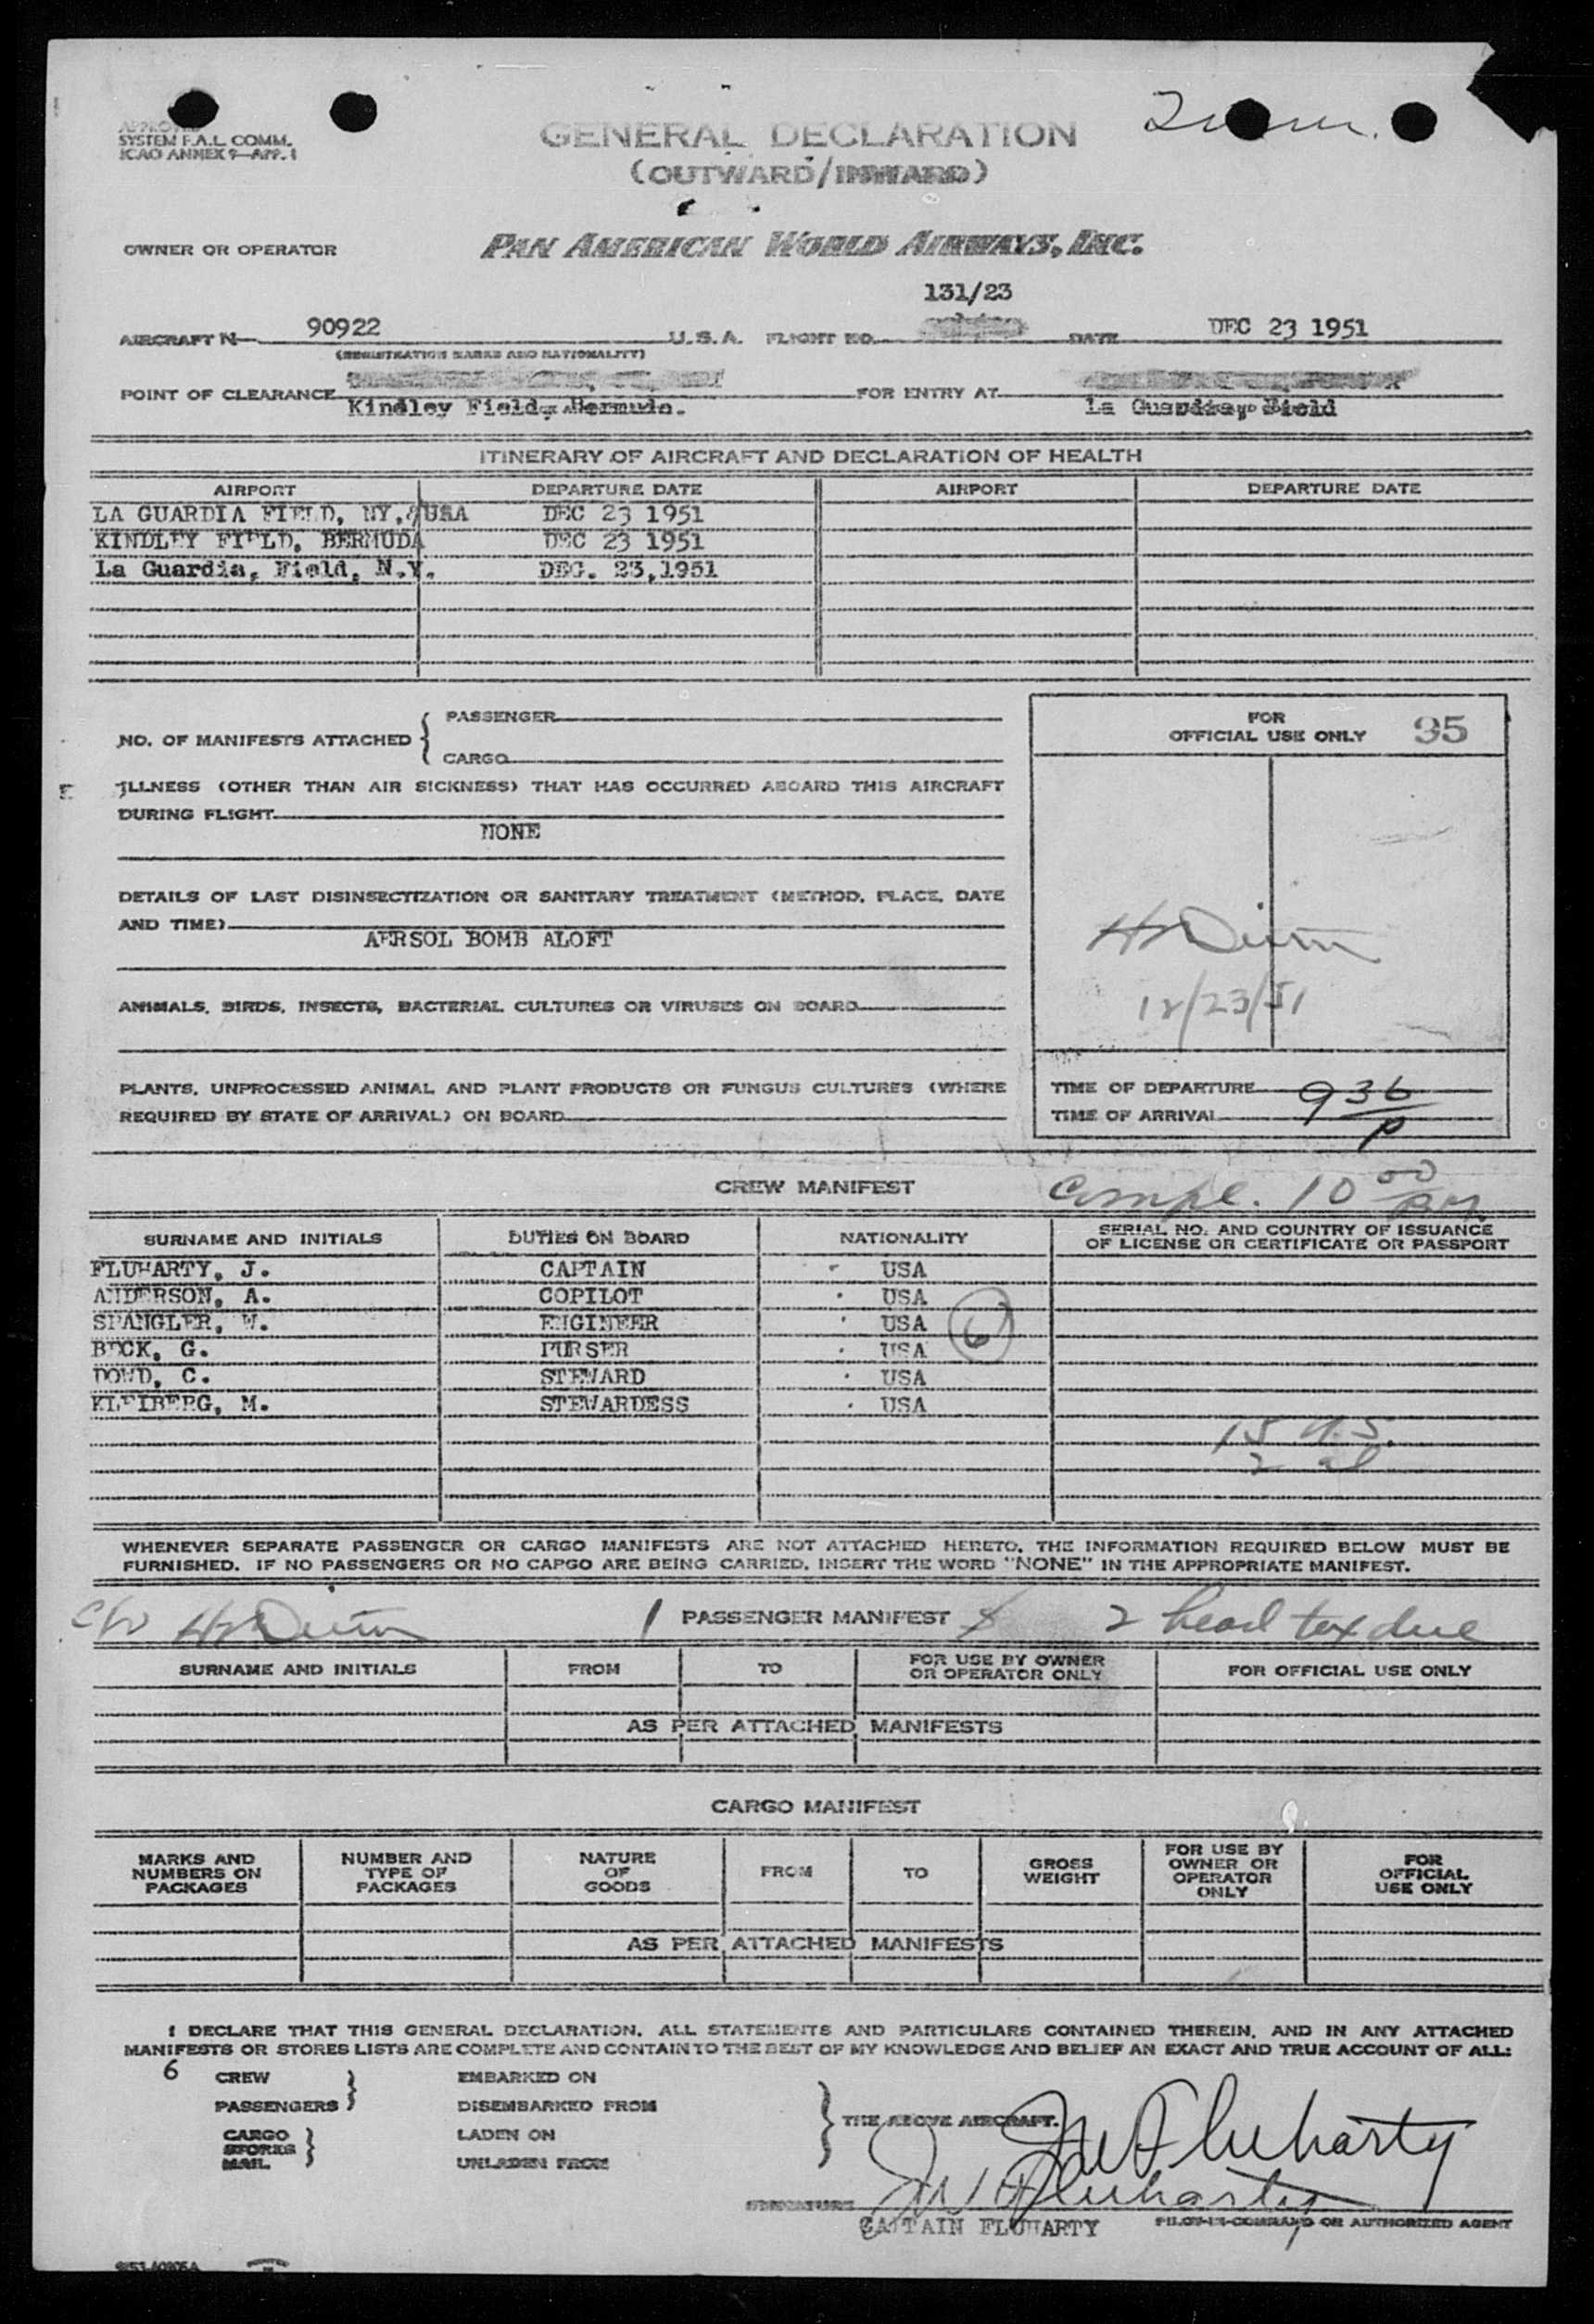 SYSTEM F.A.L. COMM.
ICAO ANNEX 9—APP. 1
GENERAL DECLARATION
(OUTWARD/INWARD)
OWNER OR OPERATOR PAN AMERICAN WORLD AIRWAYS, INC.
131/23
AIRCRAFT N— 90922 U.S.A. FLIGHT NO. DATE DEC 23 1951
(REGISTRATION MARKS AND NATIONALITY)
POINT OF CLEARANCE Kindley Field, Bermuda. FOR ENTRY AT La Guardia, Field
ITINERARY OF AIRCRAFT AND DECLARATION OF HEALTH
AIRPORT DEPARTURE DATE AIRPORT DEPARTURE DATE
LA GUARDIA FIELD, NY, USA DEC 23 1951
KINDLEY FIELD, BERMUDA DEC 23 1951
La Guardia, Field, N.Y. DEC. 23,1951
NO. OF MANIFESTS ATTACHED { PASSENGER
CARGO
ILLNESS (OTHER THAN AIR SICKNESS) THAT HAS OCCURRED ABOARD THIS AIRCRAFT
DURING FLIGHT
NONE
DETAILS OF LAST DISINSECTIZATION OR SANITARY TREATMENT (METHOD, PLACE, DATE
AND TIME)
AERSOL BOMB ALOFT
ANIMALS, BIRDS, INSECTS, BACTERIAL CULTURES OR VIRUSES ON BOARD
PLANTS, UNPROCESSED ANIMAL AND PLANT PRODUCTS OR FUNGUS CULTURES (WHERE
REQUIRED BY STATE OF ARRIVAL) ON BOARD
FOR
OFFICIAL USE ONLY 35
12/23/51
TIME OF DEPARTURE 936
TIME OF ARRIVAL P
CREW MANIFEST
Compl. 10 00
SURNAME AND INITIALS DUTIES ON BOARD NATIONALITY SERIAL NO. AND COUNTRY OF ISSUANCE
OF LICENSE OR CERTIFICATE OR PASSPORT
FLUHARTY, J. CAPTAIN USA
ANDERSON, A. COPILOT USA
SPANGLER, W. ENGINEER USA 6
BECK, G. PURSER USA
DOWD, C. STEWARD USA
KLEIBERG, M. STEWARDESS USA
15 U.S.
2 al
WHENEVER SEPARATE PASSENGER OR CARGO MANIFESTS ARE NOT ATTACHED HERETO, THE INFORMATION REQUIRED BELOW MUST BE
FURNISHED. IF NO PASSENGERS OR NO CARGO ARE BEING CARRIED, INSERT THE WORD "NONE" IN THE APPROPRIATE MANIFEST.
PASSENGER MANIFEST 2 head tax due
SURNAME AND INITIALS FROM TO FOR USE BY OWNER
OR OPERATOR ONLY FOR OFFICIAL USE ONLY
AS PER ATTACHED MANIFESTS
CARGO MANIFEST
MARKS AND
NUMBERS ON
PACKAGES
NUMBER AND
TYPE OF
PACKAGES
NATURE
OF
GOODS
FROM
TO
GROSS
WEIGHT
FOR USE BY
OWNER OR
OPERATOR
ONLY
FOR
OFFICIAL
USE ONLY
AS PER ATTACHED MANIFESTS
I DECLARE THAT THIS GENERAL DECLARATION, ALL STATEMENTS AND PARTICULARS CONTAINED THEREIN, AND IN ANY ATTACHED
MANIFESTS OR STORES LISTS ARE COMPLETE AND CONTAIN TO THE BEST OF MY KNOWLEDGE AND BELIEF AN EXACT AND TRUE ACCOUNT OF ALL:
6 CREW EMBARKED ON
PASSENGERS DISEMBARKED FROM
CARGO LADEN ON
STORES
MAIL UNLADEN FROM
THE ABOVE AIRCRAFT.
JW Fluharty
JW Fluharty
SIGNATURE
CAPTAIN FLUHARTY PILOT-IN-COMMAND OR AUTHORIZED AGENT